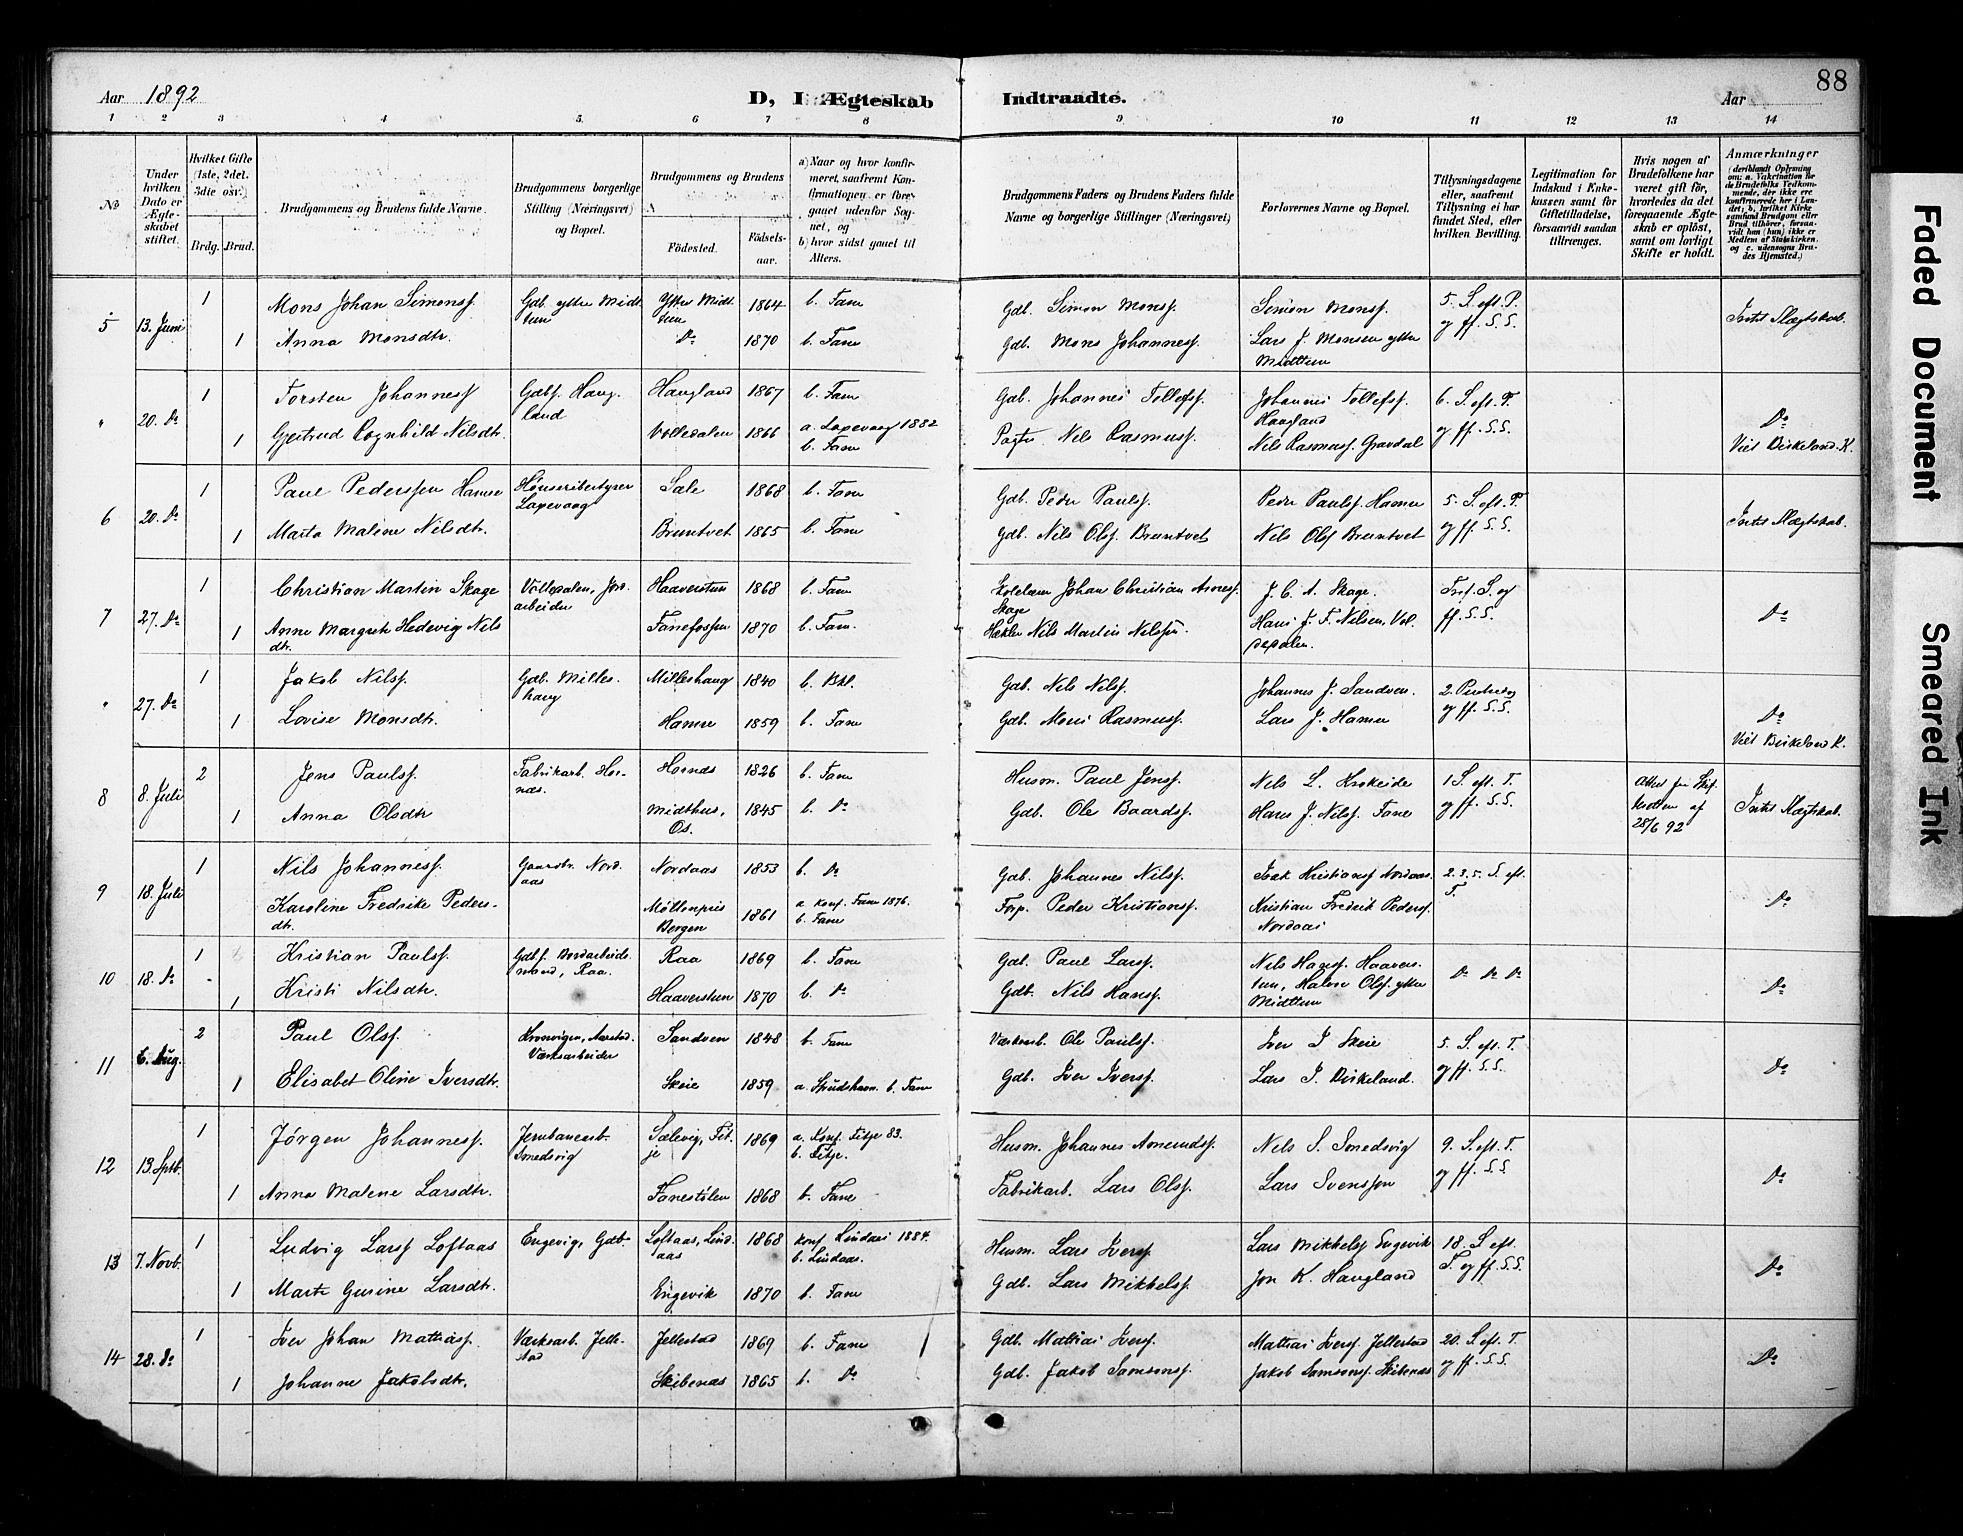 88
Aar 1892
D, I Ægteskab Indtraadte.
Aar
1 2 3 4 5. 6 7 8 9 10 11 12 13 14
№
Under hvilken Dato er Ægteskabet stiftet.
Hvilket Gifte (1ste, 2det, 3die osv.)
Brdg. Brud.
Brudgommens og Brudens fulde Navne.
Brudgommens borgerlige Stilling (Næringsvei) og Bopæl.
Brudgommens og Brudens
Födested.
Födsels-aar.
a) Naar og hvor konfirmeret, saafremt Konfirmationen er foregaaet udenfor Sognet, og
b) hvor sidst gaaet til Alters.
Brudgommens Faders og Brudens Faders fulde Navne og borgerlige Stillinger (Næringsvei)
Forlovernes Navne og Bopæl.
Tillysningsdagene eller, saafremt Tillysning ei har fundet Sted, efter hvilken Bevilling.
Legitimation for Indskud i Enkekassen samt for Giftetilladelse, forsaavidt saadan tiltrænges.
Hvis nogen af Brudefolkene har været gift för, hvorledes da det foregaaende Ægteskab er oplöst, samt om lovligt Skifte er holdt.
Anmærkninger
(deriblandt Oplysning om: a. Vakcination for de Brudefolks Vedkommende, der ikke ere konfirmerede her i Landet; b. hvilket Kirkesamfund Brudgom eller Brud tilhörer, forsaavidt han (hun) ikke er Medlem af Statskirken. og c. udensogns Brudes Hjemsted.)
5 13. Juni 1 Mons Johan Simonss. Gdb. ytre Midttun Ytre Midttun 1864 b. Fane Gdb. Simon Monss. Simon Monss. 5. S. eft. P. og ff. S.S. Intet Slægtskab.
1 Anna Monsdtr. Do 1870 b. Fane Gdb. Mons Johanness. Lars J. Monsen ytre Midttun
" 20. Do 1 Torsten Johanness Gdbs. Haugland Haugland 1867 b. Fane Gdb. Johannes Tollefss. Johannes Tollefss. Haugland 6. S. eft. P. og ff. S.S. Do
1 Gjertrud Rognhild Nilsdtr. 1866 a. Laxevaag 1882 b. Fane Nels Rasmuss. Nils Rasmuss. Gravdal Viet Birkeland K.
6 20. Do 1 Paul Pederssen Hamre Laxevaag Sale 1868 b. Fane Gdb. Peder Paulss. Peder Paulss. Hamre 5. S. eft. P. og ff. S.S. Intet Slægtskab.
1 Marta Malene Nilsdtr. Bruntvet 1865 b. Fane Gdb. Nils Olss. Bruntvet Nils Olss Bruntvet
7 27. Do 1 Christian Martin Skage arbeider Haaverstun 1868 b. Fane Johan Christian Skage J. C. A. Skage. Tref. S. og ff. S.S. Do
1 Anne Margrete Hedevig Nilsdtr. Fanefossen 1870 b. Fane. Nils Martin Nilssen. Hans J. F. Nilsen,
" 27. Do 1 Jakob Nilss. Gdb. Milleshaug Milleshaug 1840 b. Bkl. Gdb. Nils Nilss. Johannes J. Sandven. og ff. S.S. Do
1 Lovise Monsdtr. Hamre 1859 b. Fane Gdb. Mons Rasmuss. Lars J. Hamre Viet Birkeland K.
8 8. Juli 2 Jens Paulss. Fabrikarb. Hornæs. Hornæs 1826 b. Fane Husm. Paul Jenss. Nils L. Krokeide 1 S. eft. T. og ff. S.S. Attest fra Skifteretten af 28/6 92 Intet Slægtskab.
1 Anna Olsdtr Midthus, Os. 1845 b. Do Gdb. Ole Baardss. Hans J. Nilss. Fane
9 18. Juli 1 Nils Johanness. Gaardbr. Nordaas Nordaas 1853 b. Do Gdb. Johannes Nilss. Isak Kristianss Nordaas. 2. 3. 5. S. eft. T. Do
1 Karoline Fredrike Pedersdtr. Møllenpris Bergen 1861 a konf. Fane 1876. b. Fane Forp. Peder Kristianss. Kristian Frederik Pederss. Nordaas
10 18. Do 1 Kristian Paulss. Gdbs. Bordarbeidsmand, Raa. Raa 1869 b. Fane Gdb. Paul Larss. Nils Hanss. Haaverstun, Halvor Olss. ytre Midttun Do Do Do Do
1 Kristi Nilsdtr. Haaverstun 1870 b. Do Gdb. Nils Hanss.
11 6. Aug. 2 Paul Olss. Kronvigen, Aarstad. Værksarbeider Sandven 1848 b. Fane Værksarb. Ole Paulss. Iver I Skeie 5. S. eft. T. og ff. S.S. Do
1 Elisabet Oline Iversdtr. Skeie 1859 b. Fane Gdb. Iver Iverss. Lars I. Birkeland.
12 13. Sptb. 1 Jørgen Johanness. Jernbanearb. Smedsvig Sælevig, Fitje 1869 a. Konf. Fitje 83. b. Fitje. Husm. Johannes Amundss. Nels S. Smedsvig 9. S. eft. T. og ff. S.S. Do
1 Anna Malene Larsdtr. Fanestølen 1868 b. Fane Fabrikarb. Lars Olss. Lars Svenssøn
13 7. Novb. 1 Ludvig Larss Loftaas Engevig, Gdb. Loftaas, Lindaas 1868 konf Lindaas 1884. b. Lindaas. Husm. Lars Iverss. Lars Mikkelss Engevik 18. S eft. T. og ff. S.S. Do
1 Marte Gurine Larsdtr. Engevik 1870 b. Fane Gdb. Lars Mikkelss. Jon K. Haugland
14 28. Do 1 Iver Johan Mathiass. Værksarb. Jellestad Jellestad 1869 b. Fane Gdb. Mathias Iverss. Mathias Iverss. Jellestad 20. S. eft. T. og ff. S.S. Do
1 Johanne Jakobsdtr. Skibenæs 1865 b. Do Gdb. Jakob Samsonss. Jakob Samsonss. Skibenæs
Faded Document
Smeared Ink